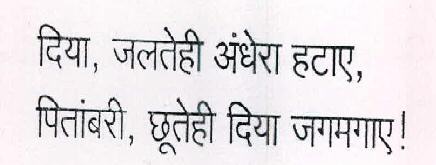 दिया, जलतेही अंधेरा हटाए,
पितांबरी, छूतेही दिया जगमगाए!